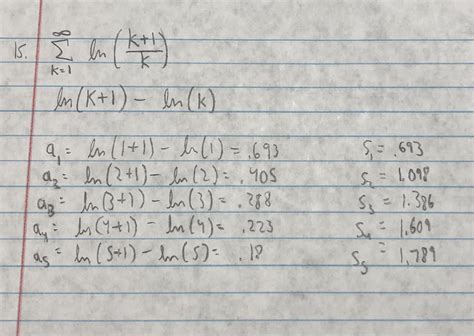 15. ∞ Σ k=1 ln(k+1/k)
ln(k+1) - ln(k)
a₁= ln(1+1) - ln(1) = .693 S₁= .693
a₂= ln(2+1) - ln(2) = .405 S₂= 1.098
a₃= ln(3+1) - ln(3) = .288 S₃= 1.386
a₄= ln(4+1) - ln(4) = .223 S₄= 1.609
a₅= ln(5+1) - ln(5) = .18 S₅= 1.789